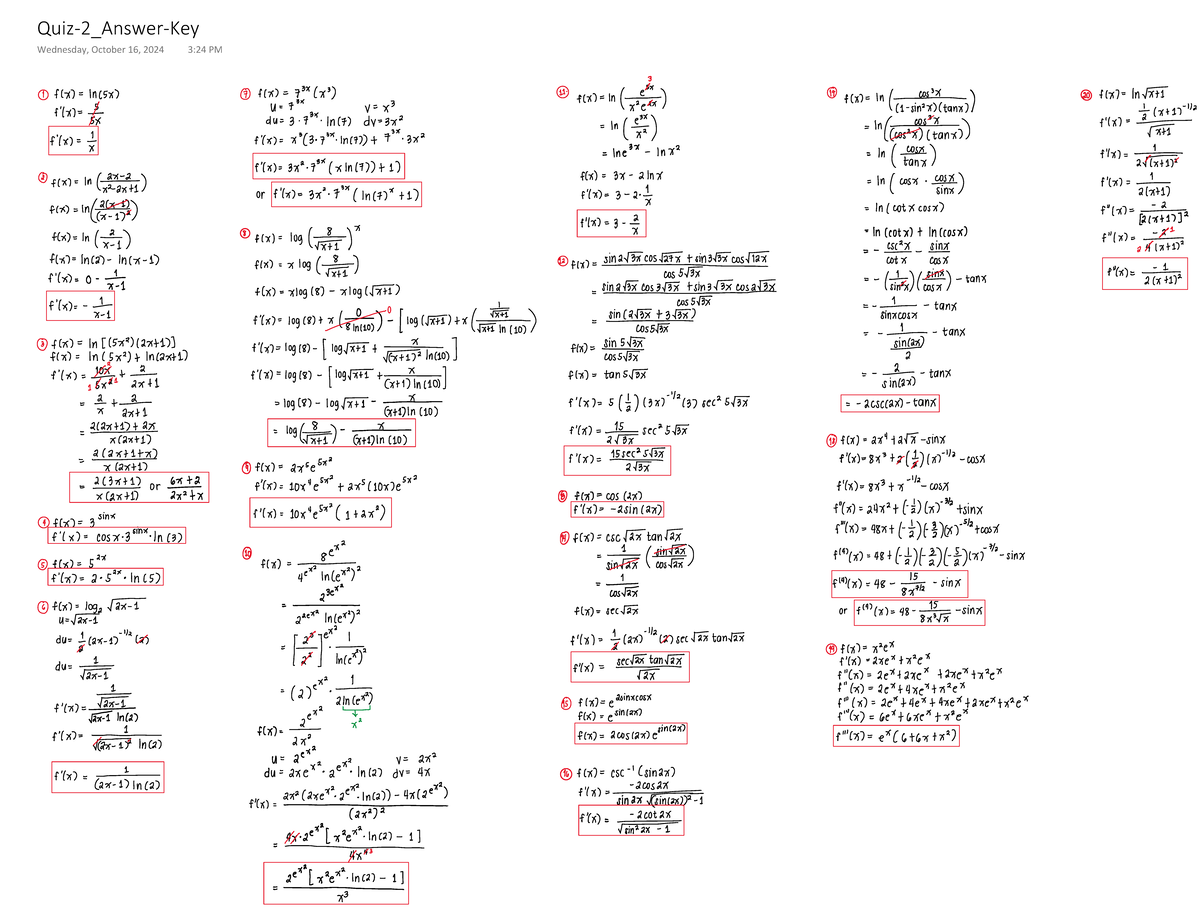 Quiz-2_Answer-Key
Wednesday, October 16, 2024 3:24 PM
① f(x) = ln(5x)
f'(x) = 5/5x
f'(x) = 1/x
② f(x) = ln((2x-2)/(x²-2x+1))
f(x) = ln(2(x-1)/(x-1)²)
f(x) = ln(2/(x-1))
f(x) = ln(2) - ln(x-1)
f'(x) = 0 - 1/(x-1)
f'(x) = - 1/(x-1)
③ f(x) = ln[(5x²)(2x+1)]
f(x) = ln(5x²) + ln(2x+1)
f'(x) = 10x/5x² + 2/(2x+1)
= 2/x + 2/(2x+1)
= (2(2x+1) + 2x)/(x(2x+1))
= (2(2x+1+x))/(x(2x+1))
= 2(3x+1)/(x(2x+1)) or (6x+2)/(2x²+x)
④ f(x) = 3^(sinx)
f'(x) = cosx·3^(sinx)·ln(3)
⑤ f(x) = 5^(2x)
f'(x) = 2·5^(2x)·ln(5)
⑥ f(x) = log₂ √(2x-1)
u = √(2x-1)
du = 1/2 (2x-1)^(-1/2) (2)
du = 1/√(2x-1)
f'(x) = (1/√(2x-1))/(√(2x-1) ln(2))
f'(x) = 1/(√(2x-1)² ln(2))
f'(x) = 1/((2x-1) ln(2))
⑦ f(x) = 7^(3x) (x³)
u = 7^(3x) v = x³
du = 3·7^(3x)·ln(7) dv = 3x²
f'(x) = x³(3·7^(3x)·ln(7)) + 7^(3x)·3x²
f'(x) = 3x²·7^(3x) (x ln(7)) + 1)
or f'(x) = 3x²·7^(3x) (ln(7)^x + 1)
⑧ f(x) = log (8/√(x+1))^x
f(x) = x log (8/√(x+1))
f(x) = xlog(8) - xlog(√(x+1))
f'(x) = log(8) + x (0/(8 ln(10))) 0 - [log(√(x+1)) + x ((1/√(x+1))/(√(x+1) ln(10)))
f'(x) = log(8) - [log√(x+1) + x/(√(x+1)² ln(10))]
f'(x) = log(8) - [log√(x+1) + x/((x+1) ln(10))]
= log(8) - log√(x+1) - x/((x+1)ln(10))
= log(8/√(x+1)) - x/((x+1)ln(10))
⑨ f(x) = 2x⁵e^(5x²)
f'(x) = 10x⁴e^(5x²) + 2x⁵(10x)e^(5x²)
f'(x) = 10x⁴e^(5x²) (1+2x²)
⑩ f(x) = 8^(e^(x²))/(4^(e^(x²)) ln(e^(x²))²)
= 2^(3e^(x²))/(2^(2e^(x²)) ln(e^(x²))²)
= [2³/2²]^(e^(x²)) · 1/ln(e^(x²))²
= (2)^(e^(x²)) · 1/(2ln(e^(x²)))
x²
f(x) = 2^(e^(x²))/(2x²)
u = 2^(e^(x²)) v = 2x²
du = 2xe^(x²)·2^(e^(x²))·ln(2) dv = 4x
f'(x) = (2x²(2xe^(x²)·2^(e^(x²))·ln(2)) - 4x(2^(e^(x²))))/(2x²)²
= (4x·2^(e^(x²))[x²e^(x²)·ln(2) - 1])/(4x⁴³)
= (2^(e^(x²))[x²e^(x²)·ln(2) - 1])/x³
⑪ f(x) = ln(e^(5x)/(x²e^(2x))) 3
= ln(e^(3x)/x²)
= lne^(3x) - lnx²
f(x) = 3x - 2lnx
f'(x) = 3 - 2·1/x
f'(x) = 3 - 2/x
⑫ f(x) = (sin2√3x cos√27x + sin3√3x cos√12x)/(cos5√3x)
= (sin2√3x cos3√3x + sin3√3x cos2√3x)/(cos5√3x)
= (sin(2√3x + 3√3x))/(cos5√3x)
f(x) = sin5√3x/cos5√3x
f(x) = tan5√3x
f'(x) = 5(1/2)(3x)^(-1/2)(3) sec²5√3x
f'(x) = 15/(2√3x) sec²5√3x
f'(x) = 15sec²5√3x/(2√3x)
⑬ f(x) = cos(2x)
f'(x) = -2sin(2x)
⑭ f(x) = csc√2x tan√2x
= 1/sin√2x (sin√2x/cos√2x)
= 1/cos√2x
f(x) = sec√2x
f'(x) = 1/2 (2x)^(-1/2) (2) sec√2x tan√2x
f'(x) = (sec√2x tan√2x)/√2x
⑮ f(x) = e^(2sinxcosx)
f(x) = e^(sin(2x))
f(x) = 2cos(2x)e^(sin(2x))
⑯ f(x) = csc⁻¹(sin2x)
f'(x) = -2cos2x/(sin2x √(sin(2x))²-1)
f'(x) = -2cot2x/√(sin²2x - 1)
⑰ f(x) = ln(cos³x/((1-sin²x)(tanx)))
= ln(cos³x/((cos²x)(tanx)))
= ln(cosx/tanx)
= ln(cosx · cosx/sinx)
= ln(cotx cosx)
= ln(cotx) + ln(cosx)
= - csc²x/cotx - sinx/cosx
= -(1/sin²x)(sinx/cosx) - tanx
= - 1/(sinxcosx) - tanx
= - 1/(sin(2x)/2) - tanx
= - 2/sin(2x) - tanx
= -2csc(2x) - tanx
⑱ f(x) = 2x⁴ + 2√x - sinx
f'(x) = 8x³ + 2(1/2)(x)^(-1/2) - cosx
f'(x) = 8x³ + x^(-1/2) - cosx
f''(x) = 24x² + (-1/2)(x)^(-3/2) + sinx
f'''(x) = 48x + (-1/2)(-3/2)(x)^(-5/2) + cosx
f⁽⁴⁾(x) = 48 + (-1/2)(-3/2)(-5/2)(x)^(-7/2) - sinx
f⁽⁴⁾(x) = 48 - 15/(8x^(7/2)) - sinx
or f⁽⁴⁾(x) = 48 - 15/(8x³√x) - sinx
⑲ f(x) = x²e^x
f'(x) = 2xe^x + x²e^x
f''(x) = 2e^x + 2xe^x + 2xe^x + x²e^x
f''(x) = 2e^x + 4xe^x + x²e^x
f'''(x) = 2e^x + 4e^x + 4xe^x + 2xe^x + x²e^x
f'''(x) = 6e^x + 6xe^x + x²e^x
f'''(x) = e^x(6+6x+x²)
⑳ f(x) = ln√(x+1)
f'(x) = (1/2 (x+1)^(-1/2))/√(x+1)
f'(x) = 1/(2√(x+1)²)
f'(x) = 1/(2(x+1))
f''(x) = -2/[2(x+1)]²
f''(x) = -2 1/(2 4(x+1)²)
f''(x) = -1/(2(x+1)²)